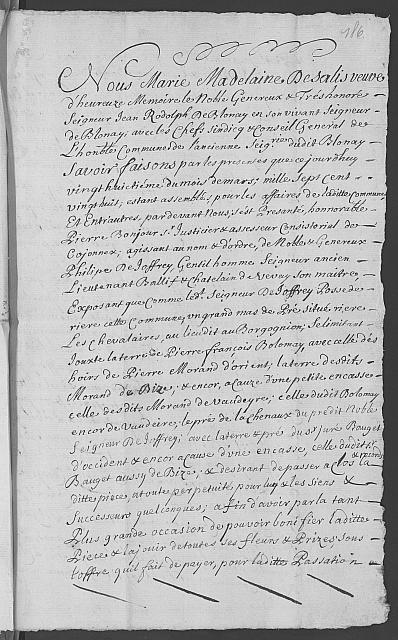 186.
Nous Marie Madelaine De Salis veuve
d'heureuze Memoire les Noble Genereux & Tréshonoré
Seigneur Jean Rodolph De Blonay en son vivant Seigneur
de Blonay; avec les Chefs sindicq & Conseil General de
L'honble Commune de l'ancienne Seigrie dudit Blonay
Savoir faisons par les presentes que ce jourdhuy
vingt huictiéme du mois de mars; mille Sept cent
vingt huit; estant assemblé, pour les affaires de laditte Commune,
Et Entr'autres par devant Nous, s'est Presenté, honnorable
Pierre Bonjour sr Justicier & assesseur Consistorial de
agissant au nom & d'ordre, de Noble & Genereux
Philipe De Joffrey Gentil homme Seigneur ancien
Lieutenant Ballif & Chatelain de Vevey son maitre,
Exposant que comme ledt Seigneur De Joffrey Possede
riere cette Commune, un grand mas de Pré situé riere
Les Chevalaires, au lieu dit au Borgognion; se limitant
Jouxte la terre de Pierre François Bolomay, avec celle dés
hoirs de Pierre Morand d'orient; la terre desdits
Morand de Bize; & encor, a cauze d'une petite encasse
celle desdits Morand de vaudeyre; celle dudit Bolomay
encor de Vaudeire; le prés de la Chenaux du prédit Noble
Seigneur De Joffrey; avec la terre & pré du Sr juré Bauget
d'occident & encor a cause d'une encasse, celle dudit Sr
Bauget aussy de Bize; & desirant de passer a Clos la
& records
ditte piece, a toute perpetuité pour luy & les siens &
Successeurs quelconques; afin d'avoir par la tant
Plus grande occasion de pouvoir bonifier laditte
Piece & la jouir de toutes ses fleurs & Prizes, sous
l'offre qu'il fait de payer, pour laditte Passation